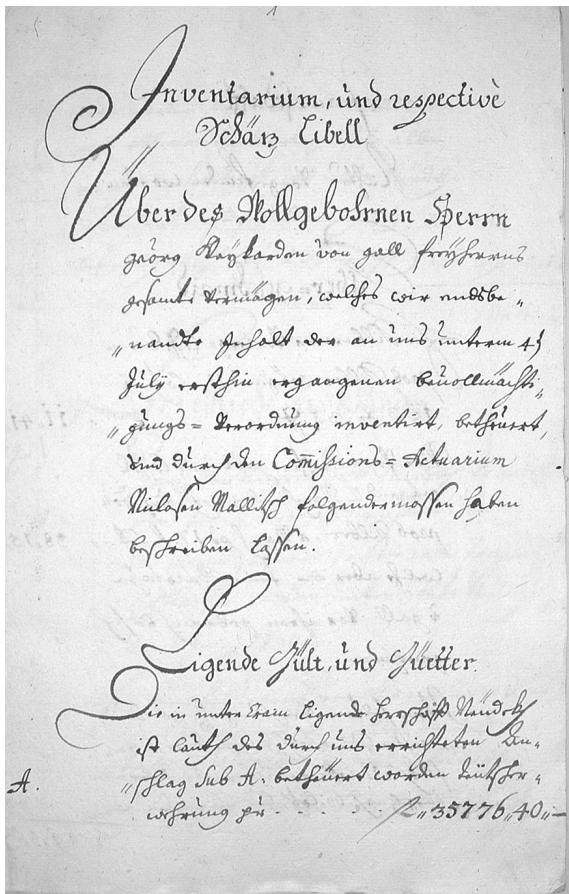 1
Inventarium, und respectivè
Schäz Libell
Über des Wollgebohrnen Herrn
Georg Reykarden von Gall freyherrns
gesamte Vermögen, welches wir endsbe„
„nandte Inhalt der an uns unterm 4t
July ersthin ergangenen bevollmächti„
„gungs=Verordnung inventirt, betheuert,
und durch den Commissions=Actuarium
Niclasen Mallitsch folgendermassen haben
beschreiben lassen.
Ligende Gült, und Güetter.
Die in unter Crain ligende Herrschafft
ist lauth des durch uns errichteten An„
A. „schlag sub A. betheuert worden teütscher„
wehrung pr - - - - f „ 35776 „ 40 „ —